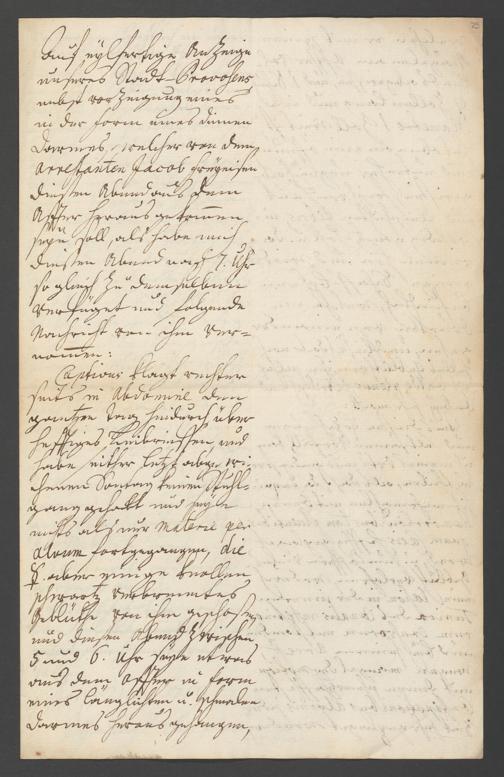 Auf eylfertige Anzeige
unseres Stadt-Provosens
nebst vorzeigung eines
in der form eines dünnen
darmes, welcher von dem
arrestanten Jacob
diesen Abend aus dem
After heraus gekommen
seyn soll, als habe mich
diesen Abend nach 7. Uhr
sogleich zu demselben
verfüget und folgende
Nachricht von ihm ver-
nommen:
klagt rechter
seits in Abdomine den
gantzen Tag hindurch über
hefftiges Leibreissen und
habe seither letzt abge-
wichenen Sontag keinen Stuhl-
gang gehabt und seye
nichts als nur materie per
alvum fortgegangen, die
aber einige knollen
schwartz verbrenntes
Geblüthe von ihm geschossen
und diesen Abend zwischen
5 und 6. Uhr seye etwas
aus dem After in form
eines länglichten u. schmalen
darmes heraus gehangen,